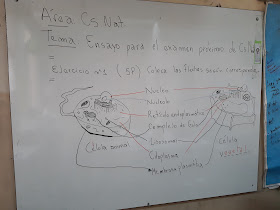 Área Cs Nat.
Tema Ensayo para el examen próximo de Cs N
Ejercicio nº1 (5P) Coloca las flechas según corresponda
Núcleo
Nucleolo
Retículo endoplasmático
Complejo de Golgi
Lisosomas
Citoplasma
Membrana plasmática
Célula animal
Célula
vegetal